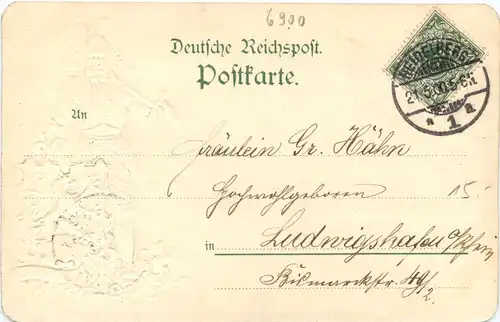 6900
Deutsche Reichspost.
Postkarte.
HEIDELBERG
1
a a
An
Fräulein Gr. Hähn
Hochwohlgeboren
15.
in Ludwigshafen a/Rhein
Bismarckstr. 49/2.